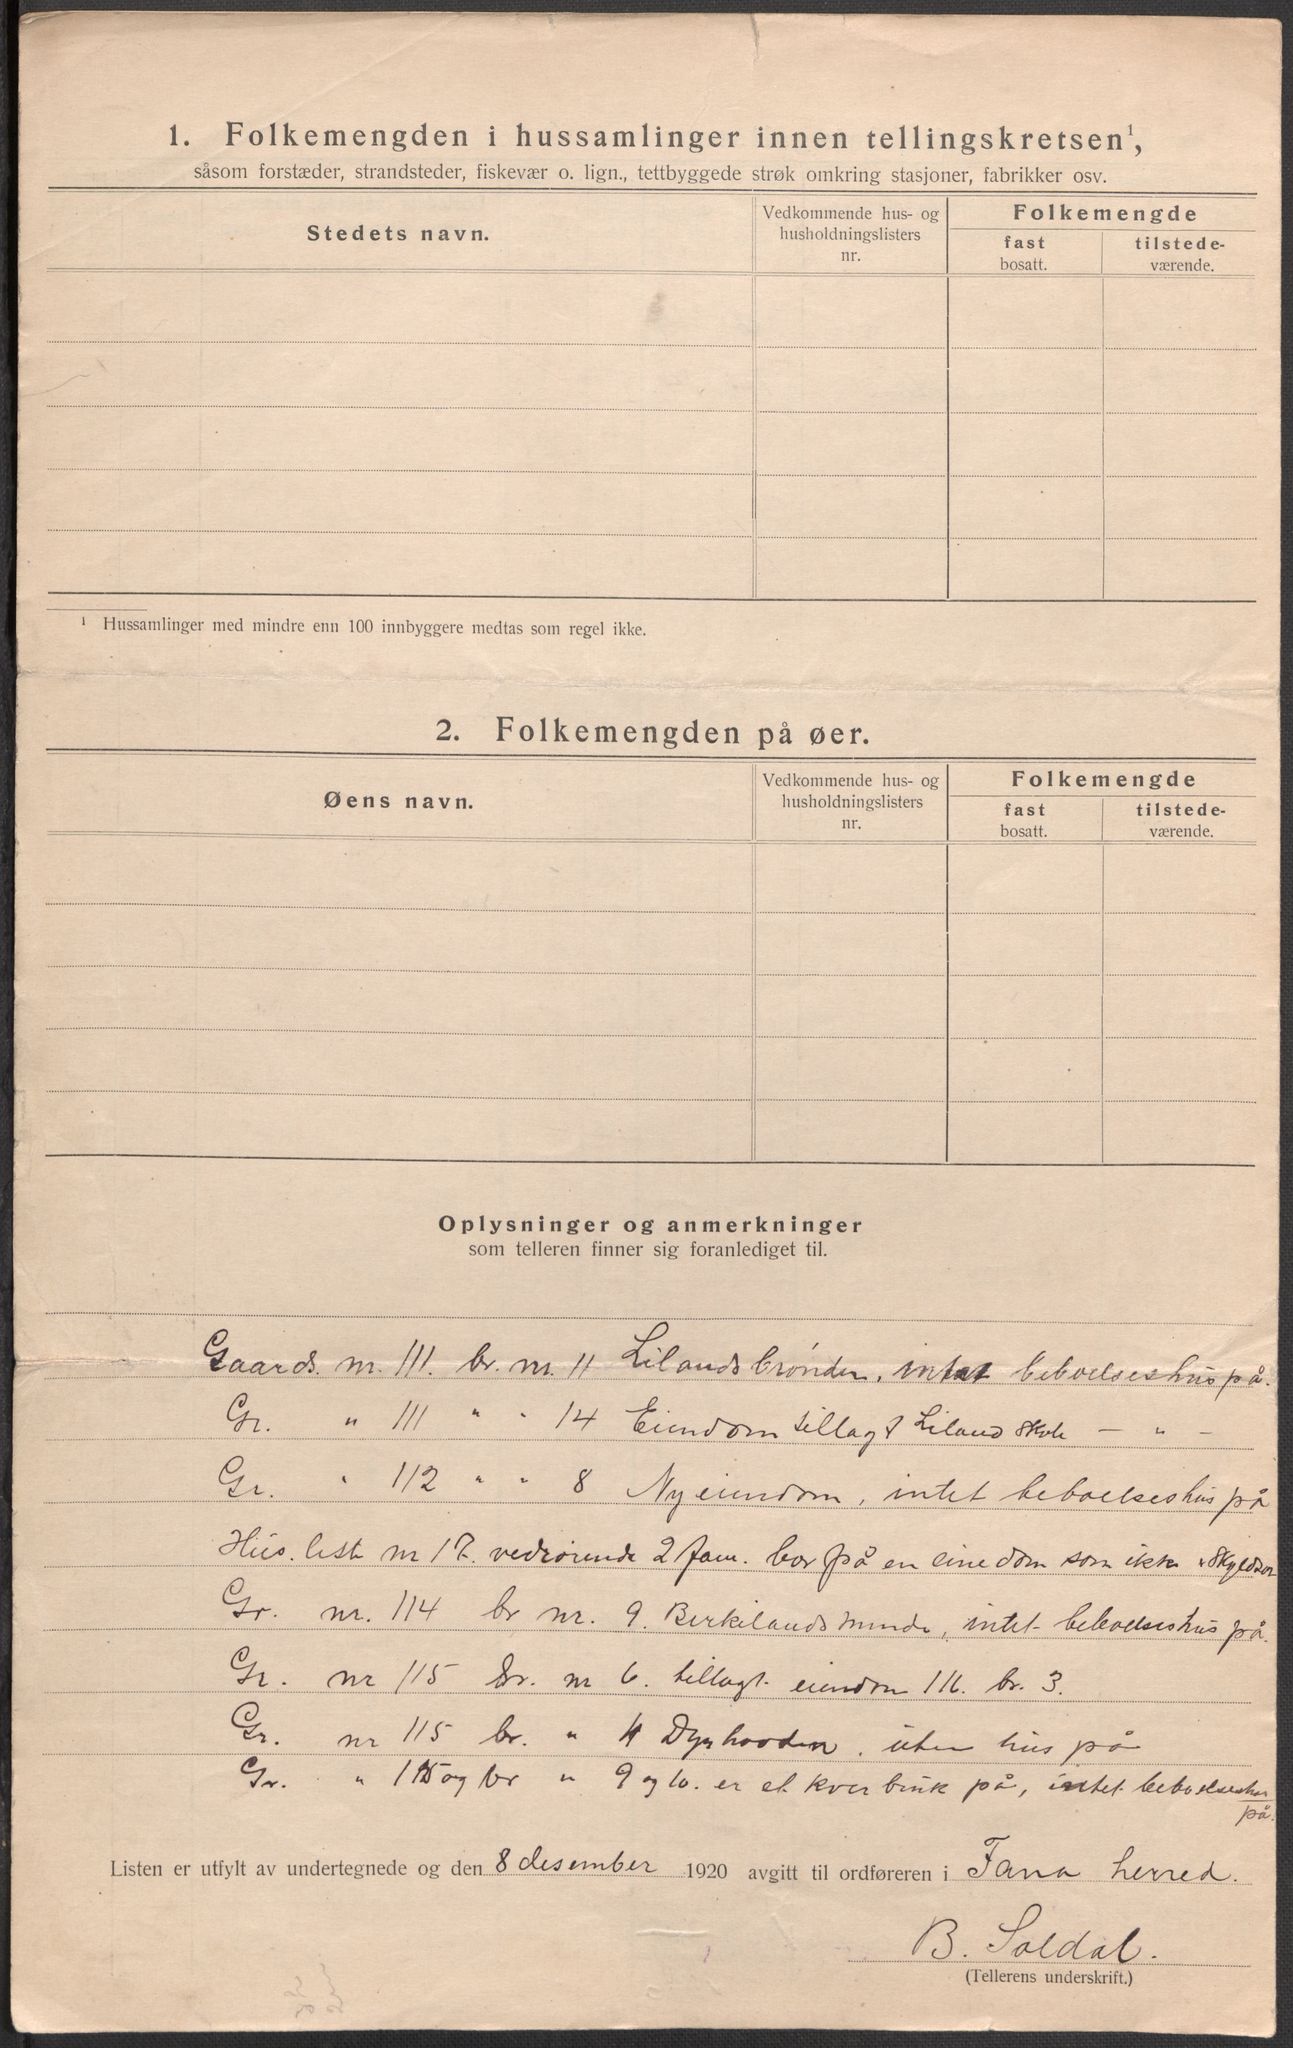 1. Folkemengden i hussamlinger innen tellingskretsen¹,
såsom forstæder, strandsteder, fiskevær o. lign., tettbyggede strøk omkring stasjoner, fabrikker osv.
Stedets navn.
Vedkommende hus- og
husholdningslisters
nr.
Folkemengde
fast
bosatt.
tilstede-
værende.
¹ Hussamlinger med mindre enn 100 innbyggere medtas som regel ikke.
2. Folkemengden på øer.
Øens navn.
Vedkommende hus- og
husholdningslisters
nr.
Folkemengde
fast
bosatt.
tilstede-
værende.
Oplysninger og anmerkninger
som telleren finner sig foranlediget til.
Gaards. nr. 111. br. nr. 11 Lilandsbrønden, intet beboelseshus på.
Gr. " 111 " " 14 Eiendom tillagt Liland skole — " —
Gr. " 112 " " 8 Ny eiendom, intet beboelseshus på
Hus. liste nr 17. vedrørende 2 fam. bor på en einedom som ikke
Gr. nr. 114 br nr. 9. Birkilandsminde, intet beboelseshus på.
Gr. nr 115 br. nr 6. tillagt eiendom 116. br. 3.
Gr. nr 115 br. " 4 uten hus på
Gr. " 115 og br " 9 og 10. er et kver bruk på, intet beboelseshus
på.
Listen er utfylt av undertegnede og den 8 desember 1920 avgitt til ordføreren i Fana herred.
B. Soldal.
(Tellerens underskrift.)